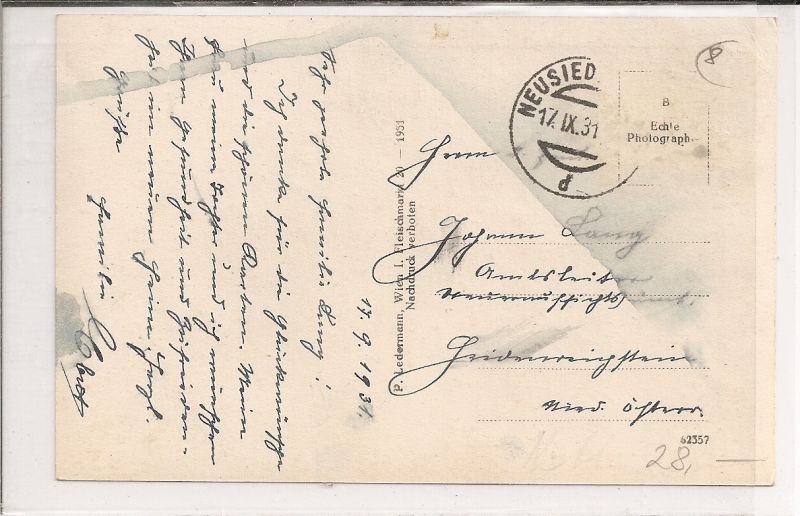 17. 9. 1931.
Sehr geehrte Familie Lang!
Ich danke für die Glückwünsche
und die schönen Karten. Meine
Frau meine Tochter und ich wünschen
Ihnen Gesundheit und Zufrieden-
heit im neuen Heim. Hzgl.
Grüße
Familie
P. Ledermann, Wien I. Fleischmarkt 20 — 1931
Nachdruck verboten
NEUSIED
17. IX. 31
B
Echte
Photograph
8
Herrn
Johann Lang
Amtsleiter
Steueraufsichts
Heidenreichstein
Nied. Österr.
62357
28,—